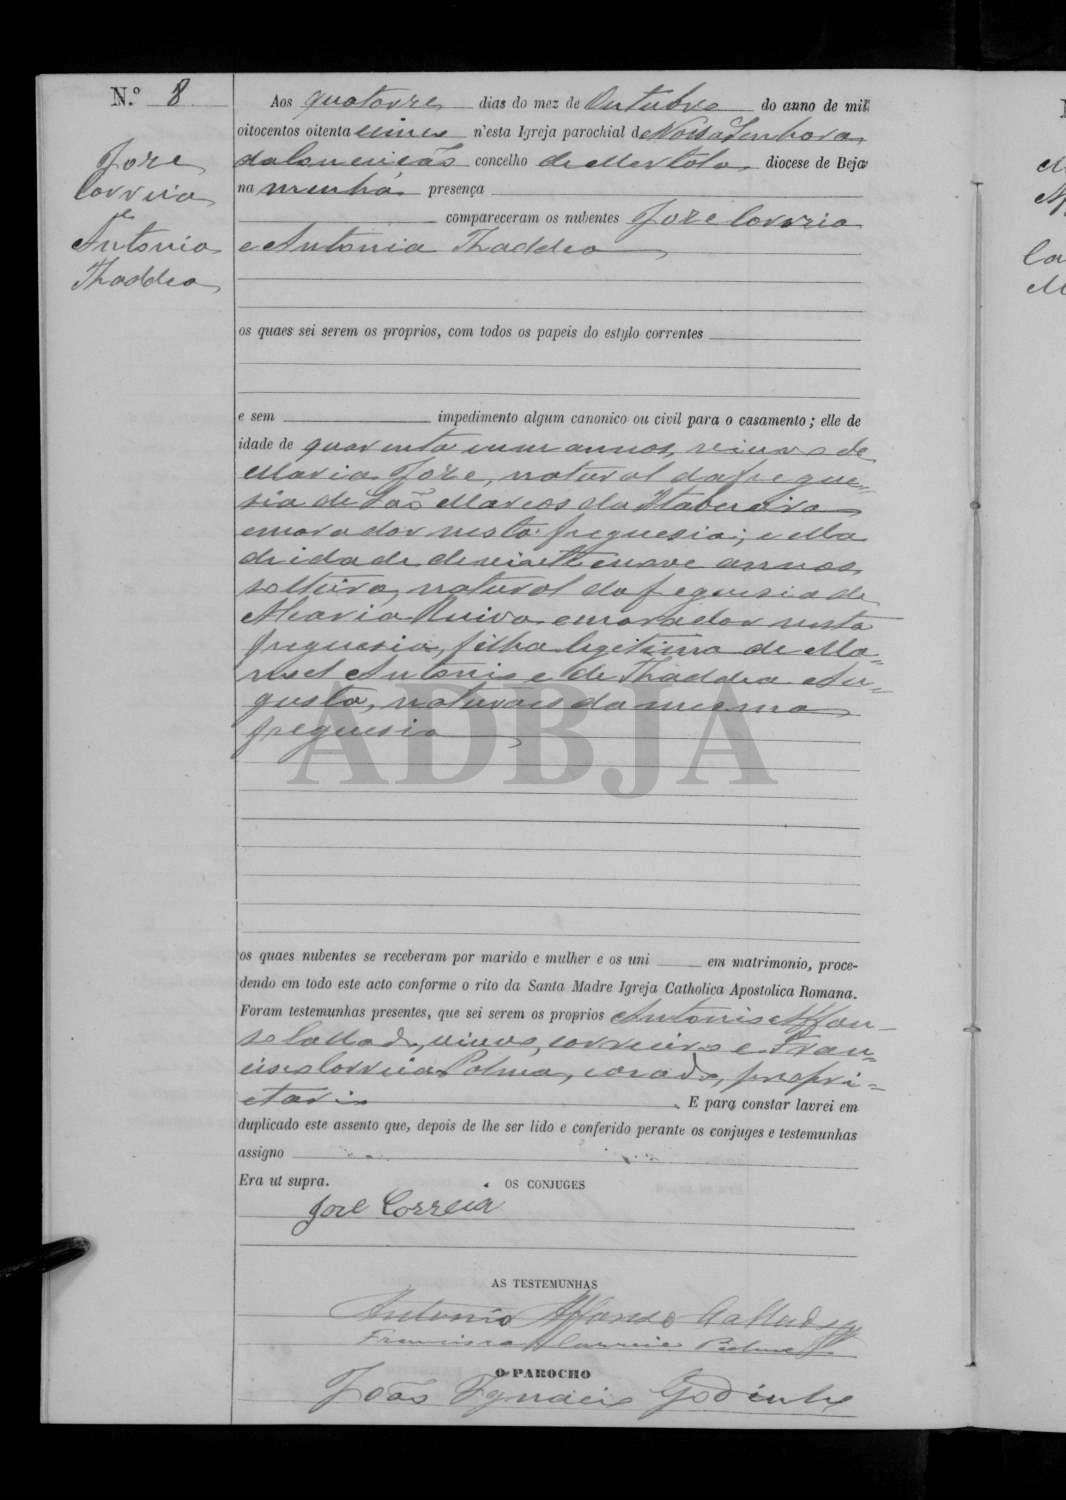 N.º 8
Aos quatorze dias do mez de Outubro do anno de mil
oitocentos oitenta e cinco n'esta Igreja parochial de Nossa Senhora
da Conceição concelho de Mertola diocese de Beja
na minha presença
compareceram os nubentes Jose Correia
e Antonia Thaddea
Jose
Correia
e
Antonia
Thaddea
os quaes sei serem os proprios, com todos os papeis do estylo correntes
e sem impedimento algum canonico ou civil para o casamento; elle de
idade de quarenta e um annos, viuvo de
Maria Jose, natural da fregue-
sia de São Marcos da Atabueira
e morador nesta freguesia; e ella
de idade de vinte e nove annos
solteira, natural da freguesia de
Maria Ruiva e morador nesta
freguesia, filha legitima de Ma-
nuel Antonio e de Thaddea Au-
gusta, naturaes da mesma
freguesia
ADBJA
os quaes nubentes se receberam por marido e mulher e os uni em matrimonio, proce-
dendo em todo este acto conforme o rito da Santa Madre Igreja Catholica Apostolica Romana.
Foram testemunhas presentes, que sei serem os proprios Antonio Affon-
so Callado, viuvo, correeiro e Fran-
cisco Correia Palma, casado, propri-
etario E para constar lavrei em
duplicado este assento que, depois de lhe ser lido e conferido perante os conjuges e testemunhas
assigno
Era ut supra.
OS CONJUGES
Jose Correia
AS TESTEMUNHAS
Antonio Affonso Callado
Francisco Correia Palma
O PAROCHO
João Ignacio Godinho